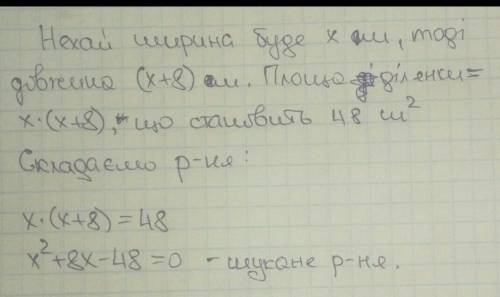 Нехай ширина буде x м, тоді
довжина (x+8) м. Площа ділянки =
x·(x+8), що становить 48 м²
Складаємо р-ня:
x·(x+8) = 48
x²+8x-48=0 - шукане р-ня.